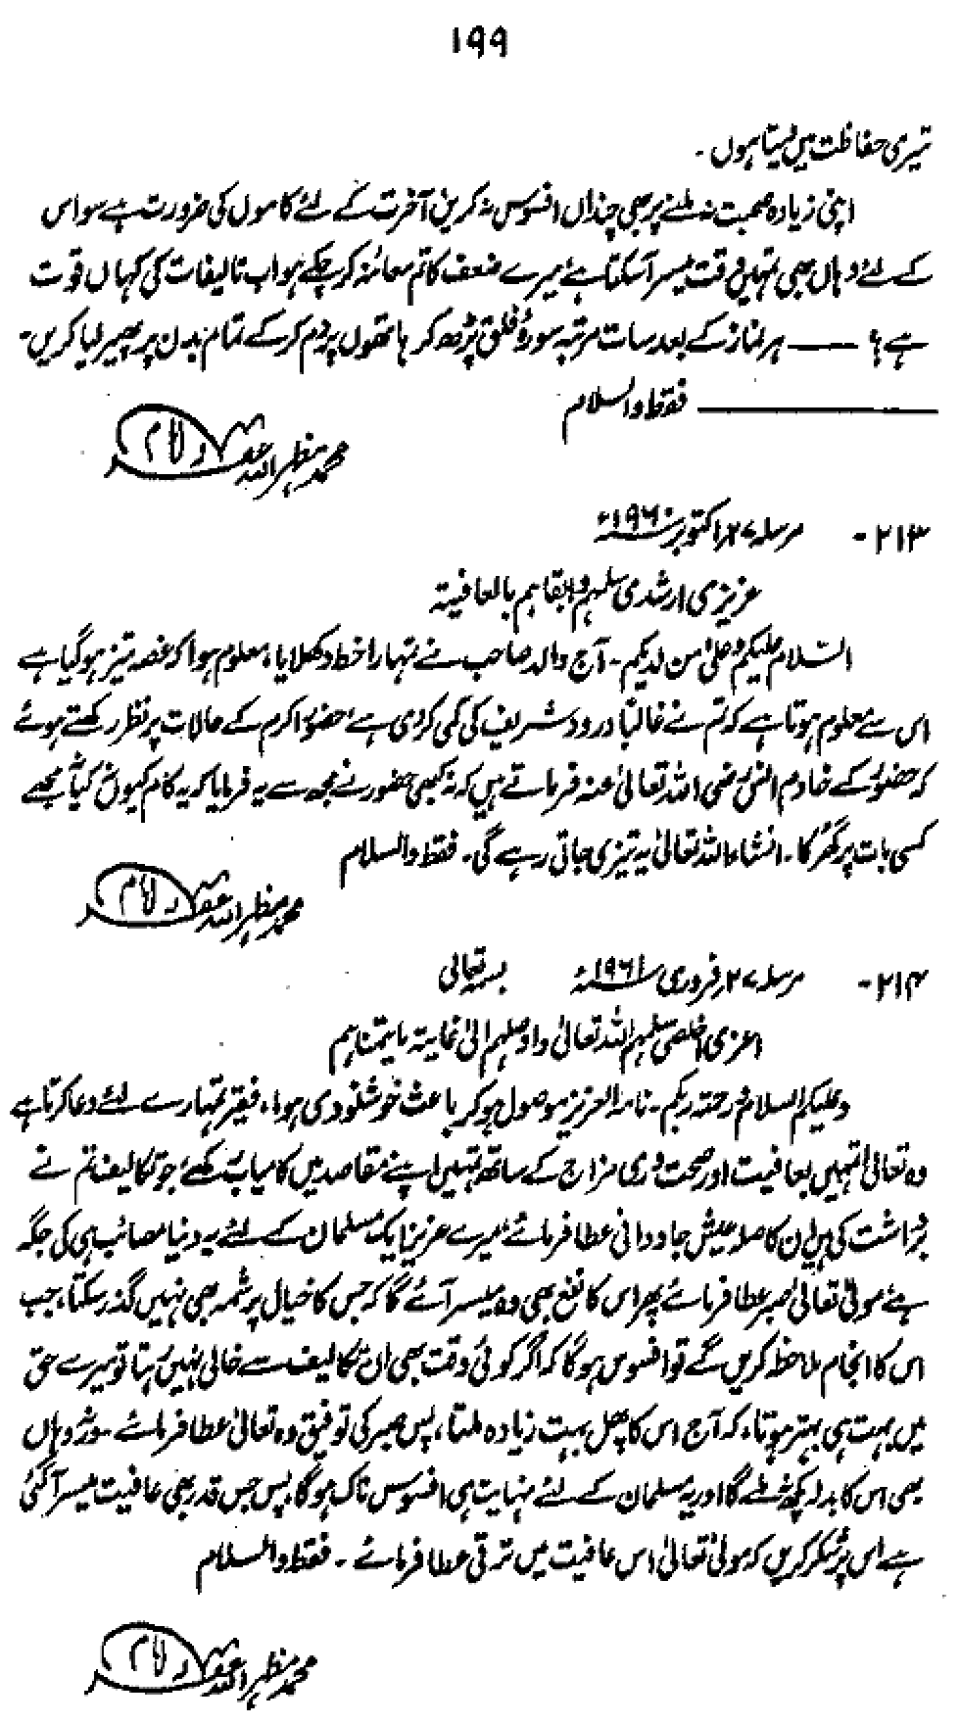 ۱۹۹
تیری حفاظت میں لیتا ہوں۔
اپنی زیادہ صحبت نہ ملنے پر بھی چنداں افسوس نہ کریں آخرت کے لئے کاموں کی ضرورت ہے سو اس
کے لئے وہاں بھی تمہیں وقت میسر آسکتا ہے میرے ضعف کا تم معائنہ کر چکے ہو اب تالیفات کی کہاں قوت
ہے؟ —— ہر نماز کے بعد سات مرتبہ سورۂ فلق پڑھ کر ہاتھوں پر دم کرکے تمام بدن پر پھیر لیا کریں۔
فقط والسلام
محمد مظہر اللہ غفرلہ
۲۱۳- مرسلہ ۲۷؍اکتوبر ۱۹۶۰ء
عزیزی ارشدی سلمہم وابقاہم بالعافیتہ
السّلام علیکم وعلیٰ من لدیکم۔ آج والد صاحب نے تمہارا خط دکھلایا، معلوم ہوا کہ غصہ تیز ہوگیا ہے
اس سے معلوم ہوتا ہے کہ تم نے غالباً درود شریف کی کمی کردی ہے، حضور اکرم کے حالات پر نظر رکھتے ہوئے
کہ حضورؐ کے خادم انسؓ رضی اللہ تعالیٰ عنہ فرماتے ہیں کہ نہ کبھی حضور نے مجھ سے یہ فرمایا کہ یہ کام کیوں کیا نہ مجھے
کسی بات پر گھُرکا۔ انشاءاللہ تعالیٰ یہ تیزی جاتی رہے گی۔ فقط والسلام
محمد مظہر اللہ غفرلہ
۲۱۴- مرسلہ ۲۷؍فروری ۱۹۶۱ء بسمہ تعالیٰ
اعزی اخلصی سلمہم اللہ تعالیٰ واوصلہم الیٰ غایتہ مایتمناہم
وعلیکم السلام ورحمتہ ربکم۔ نامہ العزیز موصول ہو کر باعث خوشنودی ہوا، فقیر تمہارے لئے دعا کرتا ہے
وہ تعالیٰ تمہیں بعافیت اور صحت وری مزاج کے ساتھ تمہیں اپنے مقاصد میں کامیاب رکھے، جو تکالیف تم نے
برداشت کی ہیں ان کا صلہ عیش جاودانی عطا فرمائے میرے عزیز! ایک مسلمان کے لئے یہ دنیا مصائب ہی کی جگہ
ہے مولیٰ تعالیٰ صبر عطا فرمائے پھر اس کا نفع بھی وہ میسر آئے گا کہ جس کا خیال پر شمہ بھی نہیں گذر سکتا، جب
اس کا انجام ملاحظہ کریں گے تو افسوس ہوگا کہ اگر کوئی وقت بھی ان تکالیف سے خالی نہیں رہتا تو میرے حق
میں بہت ہی بہتر ہوتا، کہ آج اس کا پھل بہت زیادہ ملتا، پس صبر کی توفیق وہ تعالیٰ عطا فرمائے۔ ورنہ وہاں
بھی اس کا بدلہ کچھ نہ ملے گا اور یہ مسلمان کے لئے نہایت ہی افسوس ناک ہوگا، پس جس قدر بھی عافیت میسر آگئی
ہے اس پر شکر کریں کہ مولیٰ تعالیٰ اس عافیت میں ترقی عطا فرمائے۔ فقط والسلام
محمد مظہر اللہ غفرلہ